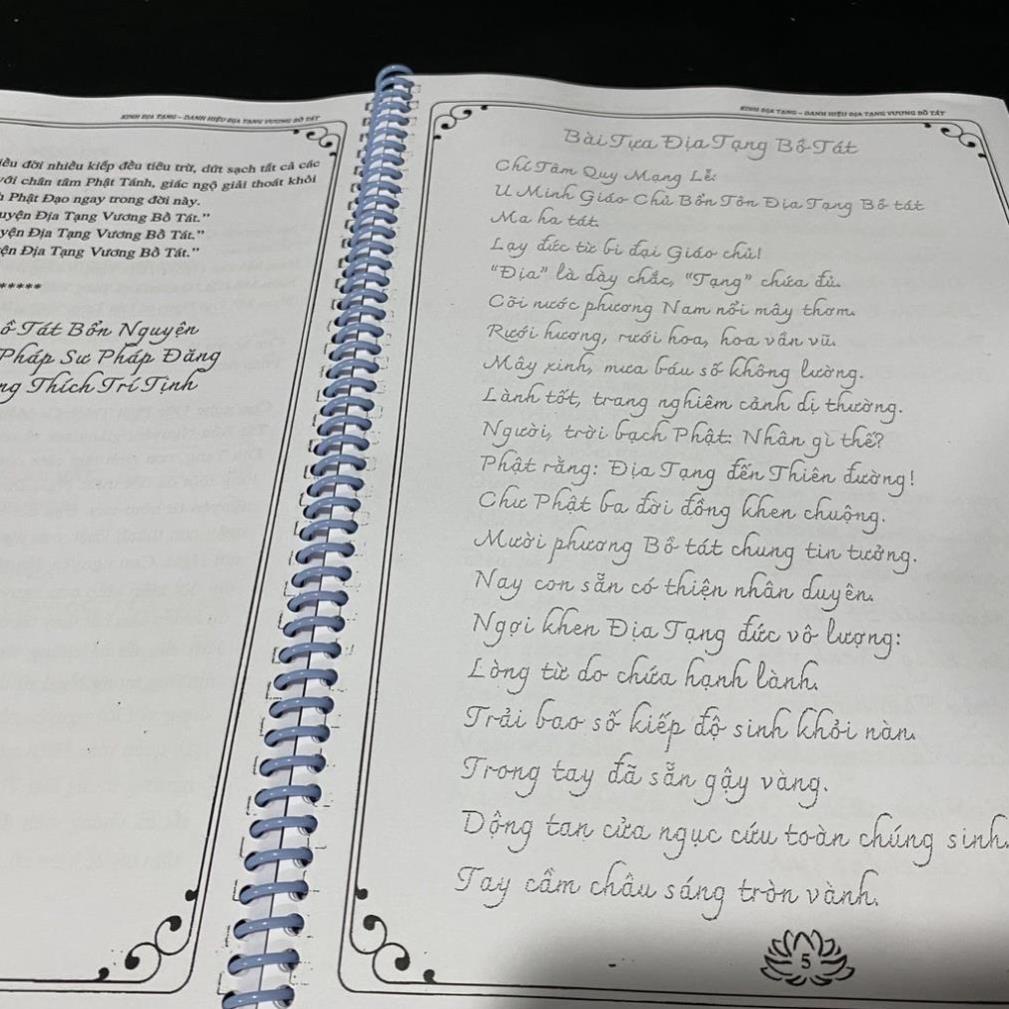 KINH ĐỊA TẠNG – DANH HIỆU ĐỊA TẠNG VƯƠNG BỒ TÁT
đời nhiều kiếp đều tiêu trừ, dứt sạch tất cả các
với chân tâm Phật Tánh, giác ngộ giải thoát khỏi
Phật Đạo ngay trong đời này.
Địa Tạng Vương Bồ Tát.”
Địa Tạng Vương Bồ Tát.”
Địa Tạng Vương Bồ Tát.”
*****
Tát Bổn Nguyện
Pháp Sư Pháp Đăng
Thích Trí Tịnh
KINH ĐỊA TẠNG – DANH HIỆU ĐỊA TẠNG VƯƠNG BỒ TÁT
Bài Tựa Địa Tạng Bồ Tát
Chí Tâm Quy Mạng Lễ:
U Minh Giáo Chủ Bổn Tôn Địa Tạng Bồ tát
Ma ha tát.
Lạy đức từ bi đại Giáo chủ!
“Địa” là dày chắc, “Tạng” chứa đủ.
Cõi nước phương Nam nổi mây thơm.
Rưới hương, rưới hoa, hoa vần vũ.
Mây xinh, mưa báu số không lường.
Lành tốt, trang nghiêm cảnh dị thường.
Người, trời bạch Phật: Nhân gì thế?
Phật rằng: Địa Tạng đến Thiên đường!
Chư Phật ba đời đồng khen chuộng.
Mười phương Bồ tát chung tin tưởng.
Nay con sẵn có thiện nhân duyên.
Ngợi khen Địa Tạng đức vô lượng:
Lòng từ do chứa hạnh lành.
Trải bao số kiếp độ sinh khỏi nàn.
Trong tay đã sẵn gậy vàng.
Dộng tan cửa ngục cứu toàn chúng sinh.
Tay cầm châu sáng tròn vành.
5